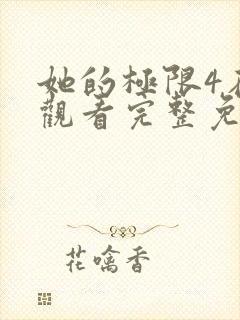 她的極限4
觀看完整免
花噙香